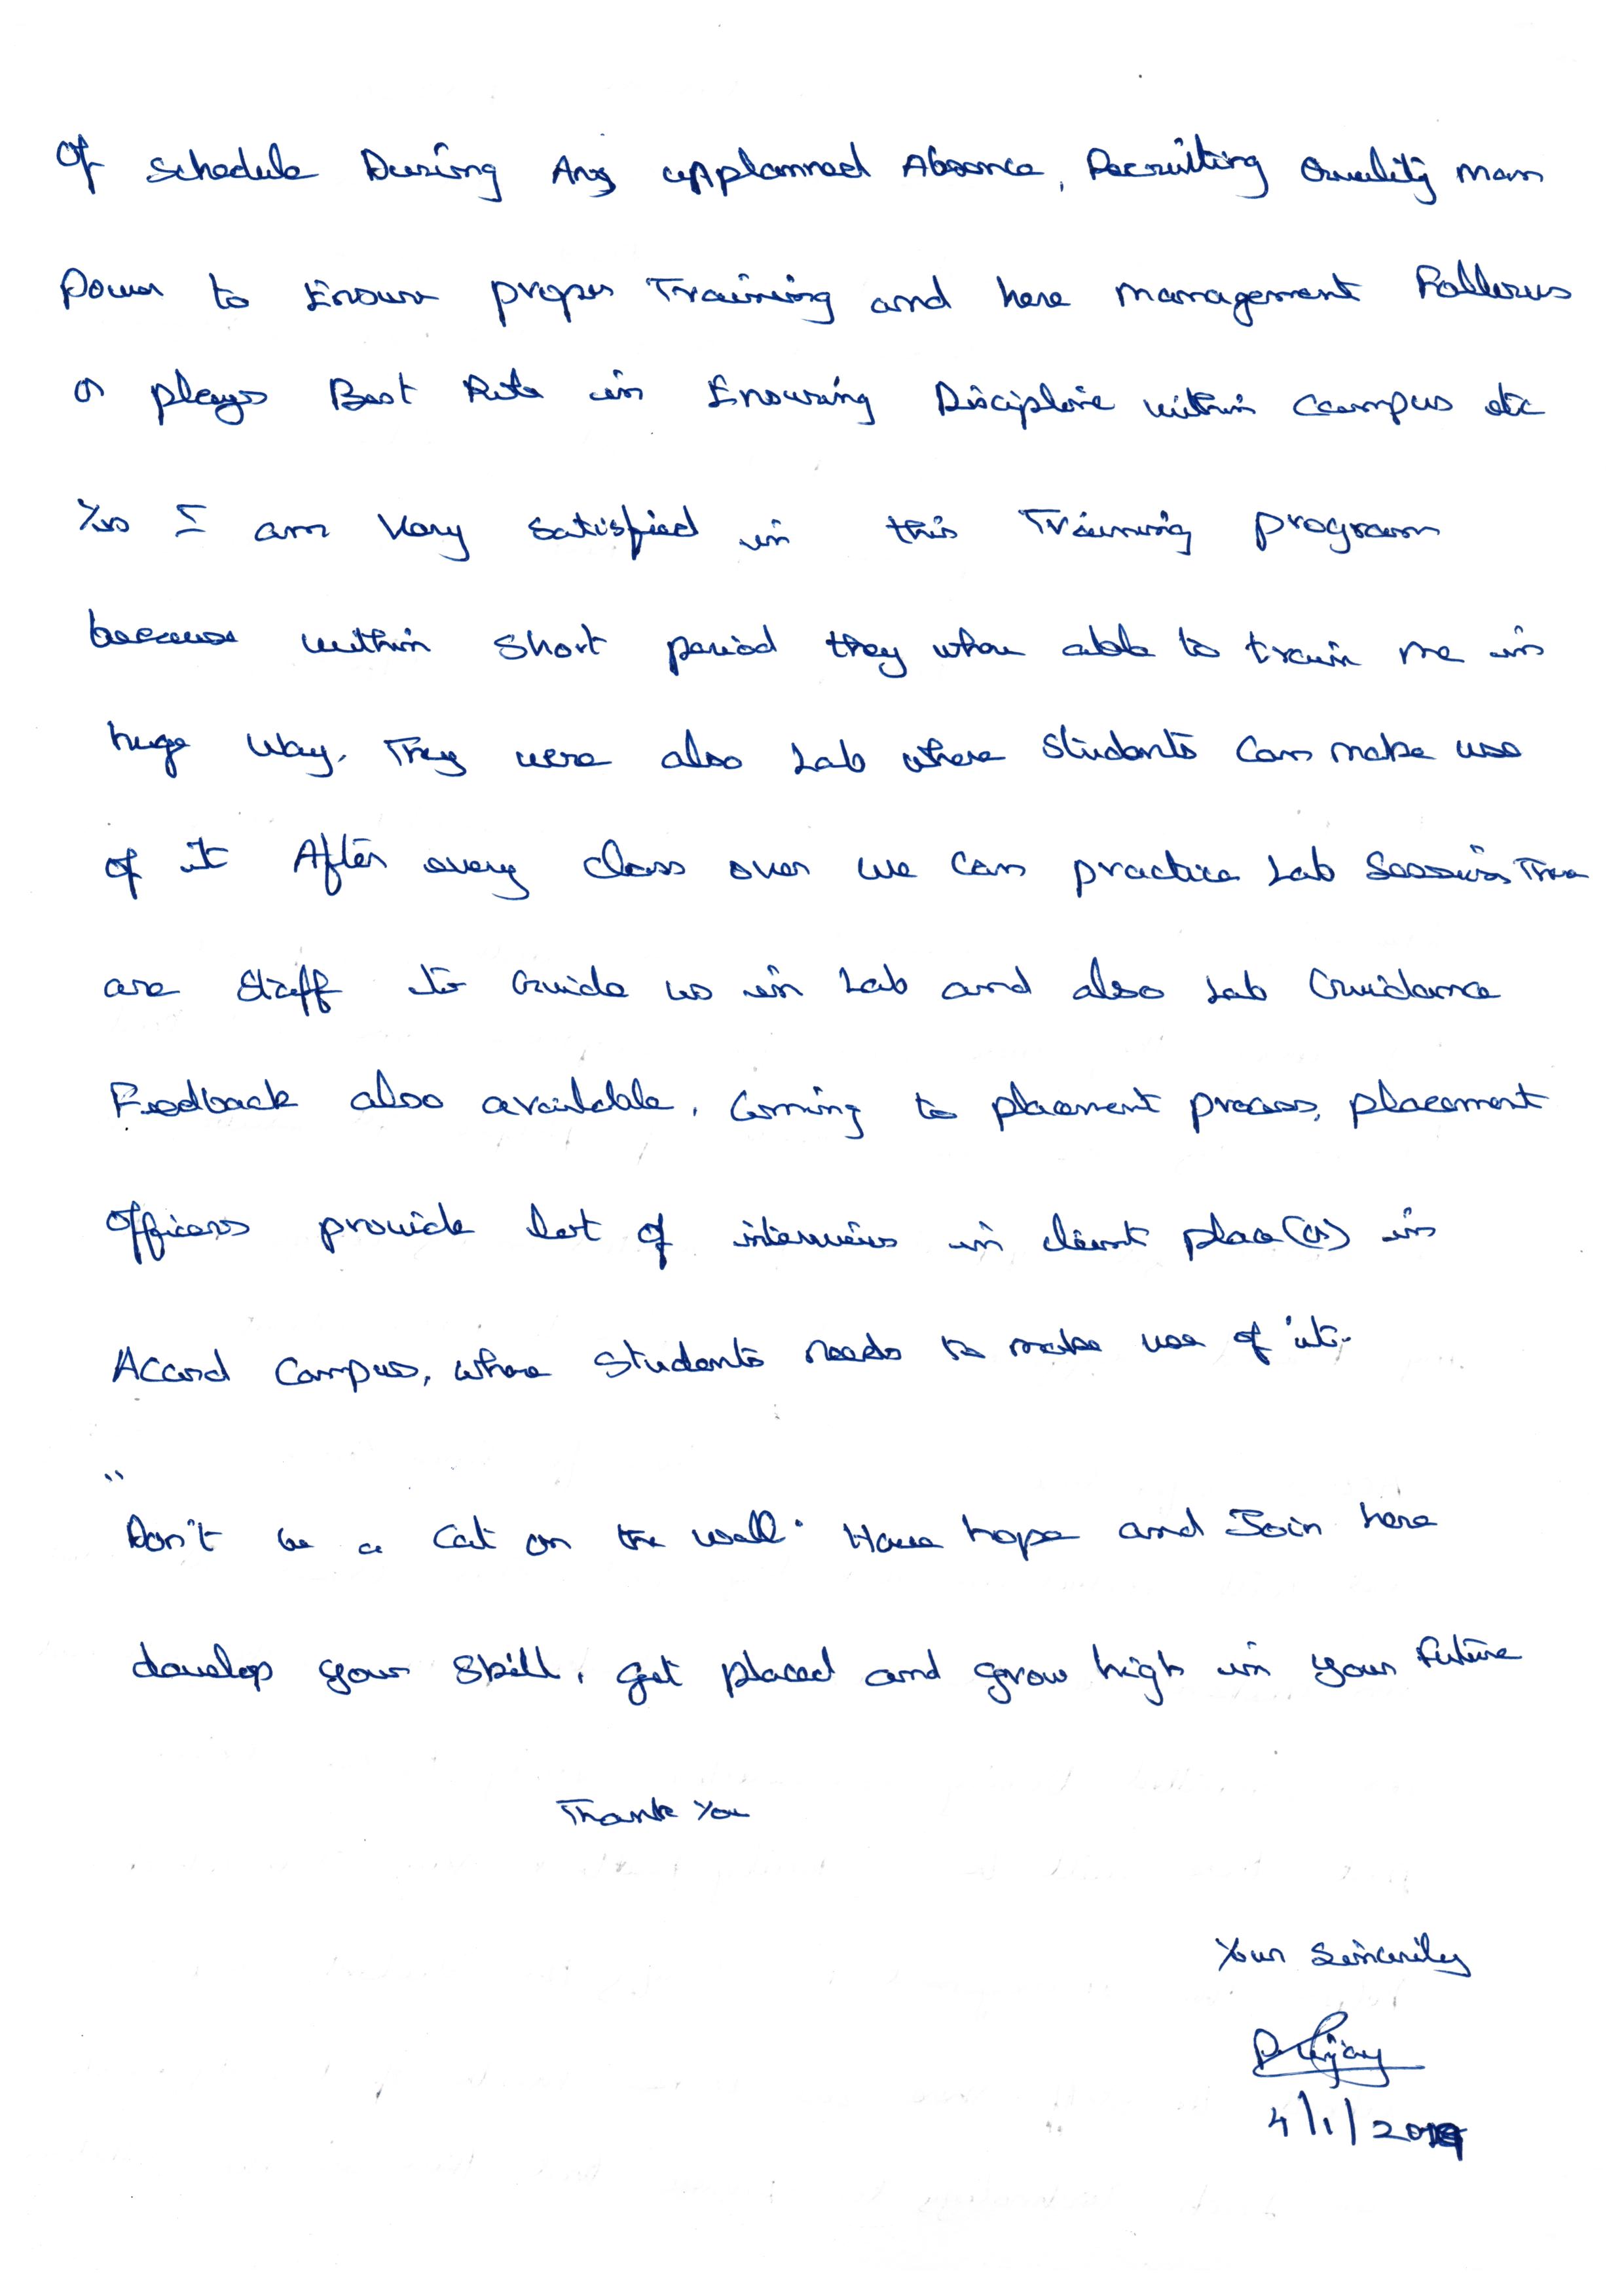 Of Schedule During Any upplanned Absence, Recruiting Quality man
power to Ensure proper Training and here management Follows
or plays Best Role in Ensuring Discipline within campus etc
Yes I am Very satisfied in this Training program
because within short period they when able to train me in
huge way. They were also Lab where students can make use
of it After every class over we can practice Lab Session There
are Staff to Guide us in Lab and also Lab Guidance
Feedback also available. Coming to placement process, placement
officers provide lot of interviews in client place (or) in
Accord Campus, where students needs to make use of it.
"Don't be a cat on the wall. Have hope and Join here
develop your skill, get placed and grow high in your future
Thank You
Your Sincerily
4/1/2019